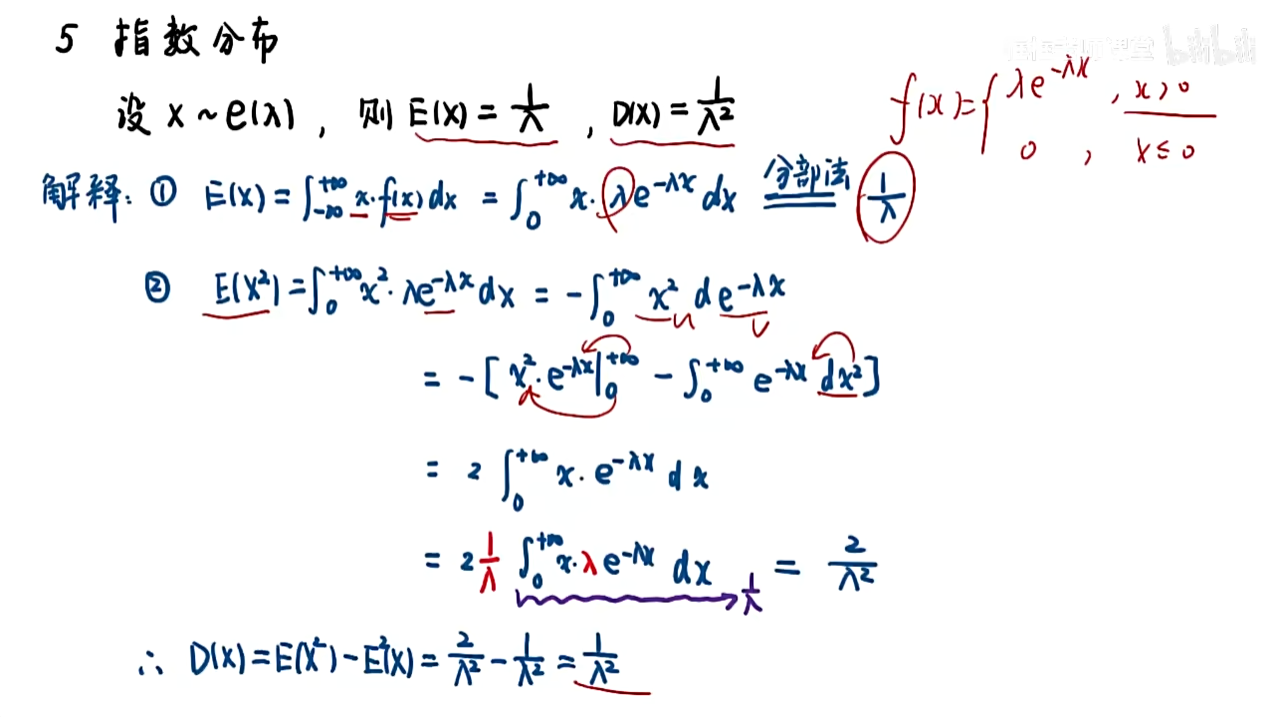 5 指数分布
设 X ~ e(λ)，则 E(X) = 1/λ，D(X) = 1/λ²
f(x) = { λe^{-λx}, x>0
0, x≤0
解释：① E(X) = ∫_{-∞}^{+∞} x·f(x)dx = ∫_0^{+∞} x·λe^{-λx}dx 分部法 1/λ
② E(X²) = ∫_0^{+∞} x²·λe^{-λx}dx = -∫_0^{+∞} x² de^{-λx}
u v
= -[x²·e^{-λx}|_0^{+∞} - ∫_0^{+∞} e^{-λx} dx²]
= 2∫_0^{+∞} x·e^{-λx} dx
= 2 1/λ ∫_0^{+∞} x·λe^{-λx} dx = 2/λ²
1/λ
∴ D(X) = E(X²) - E²(X) = 2/λ² - 1/λ² = 1/λ²
bilibili